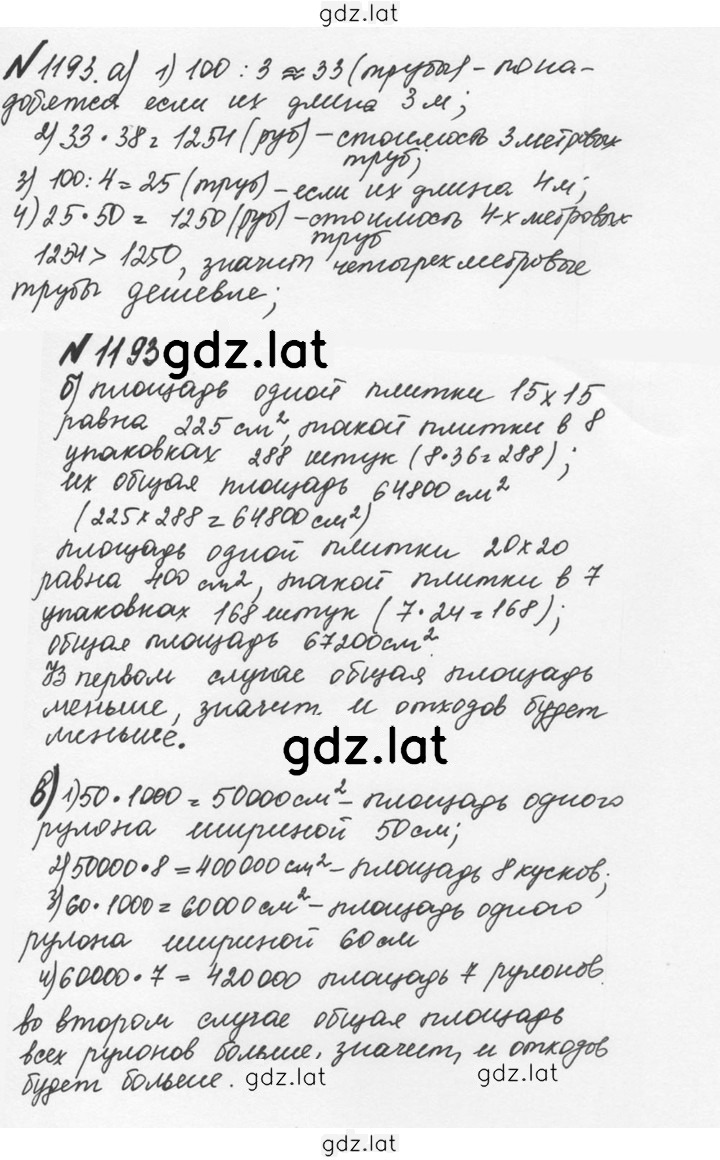 gdz.lat
N 1193. а) 1) 100 : 3 ≈ 33 (трубы) - пона-
добятся если их длина 3 м;
2) 33 · 38 = 1254 (руб) - стоимость 3 метровых
труб;
3) 100 : 4 = 25 (труб) - если их длина 4 м;
4) 25 · 50 = 1250 (руб) - стоимость 4-х метровых
труб
1254 > 1250, значит четырехметровые
трубы дешевле;
N 1193 gdz.lat
б) площадь одной плитки 15 x 15
равна 225 см², такой плитки в 8
упаковках 288 штук (8 · 36 = 288);
их общая площадь 64800 см²
(225 x 288 = 64800 см²)
площадь одной плитки 20 x 20
равна 400 см², такой плитки в 7
упаковках 168 штук (7 · 24 = 168);
общая площадь 67200 см².
В первом случае общая площадь
меньше, значит и отходов будет
меньше.
gdz.lat
в) 1) 50 · 1000 = 50000 см² - площадь одного
рулона шириной 50 см;
2) 50000 · 8 = 400000 см² - площадь 8 кусков;
3) 60 · 1000 = 60000 см² - площадь одного
рулона шириной 60 см
4) 60000 · 7 = 420000 площадь 7 рулонов.
во втором случае общая площадь
всех рулонов больше, значит, и отходов
будет больше. gdz.lat gdz.lat
gdz.lat